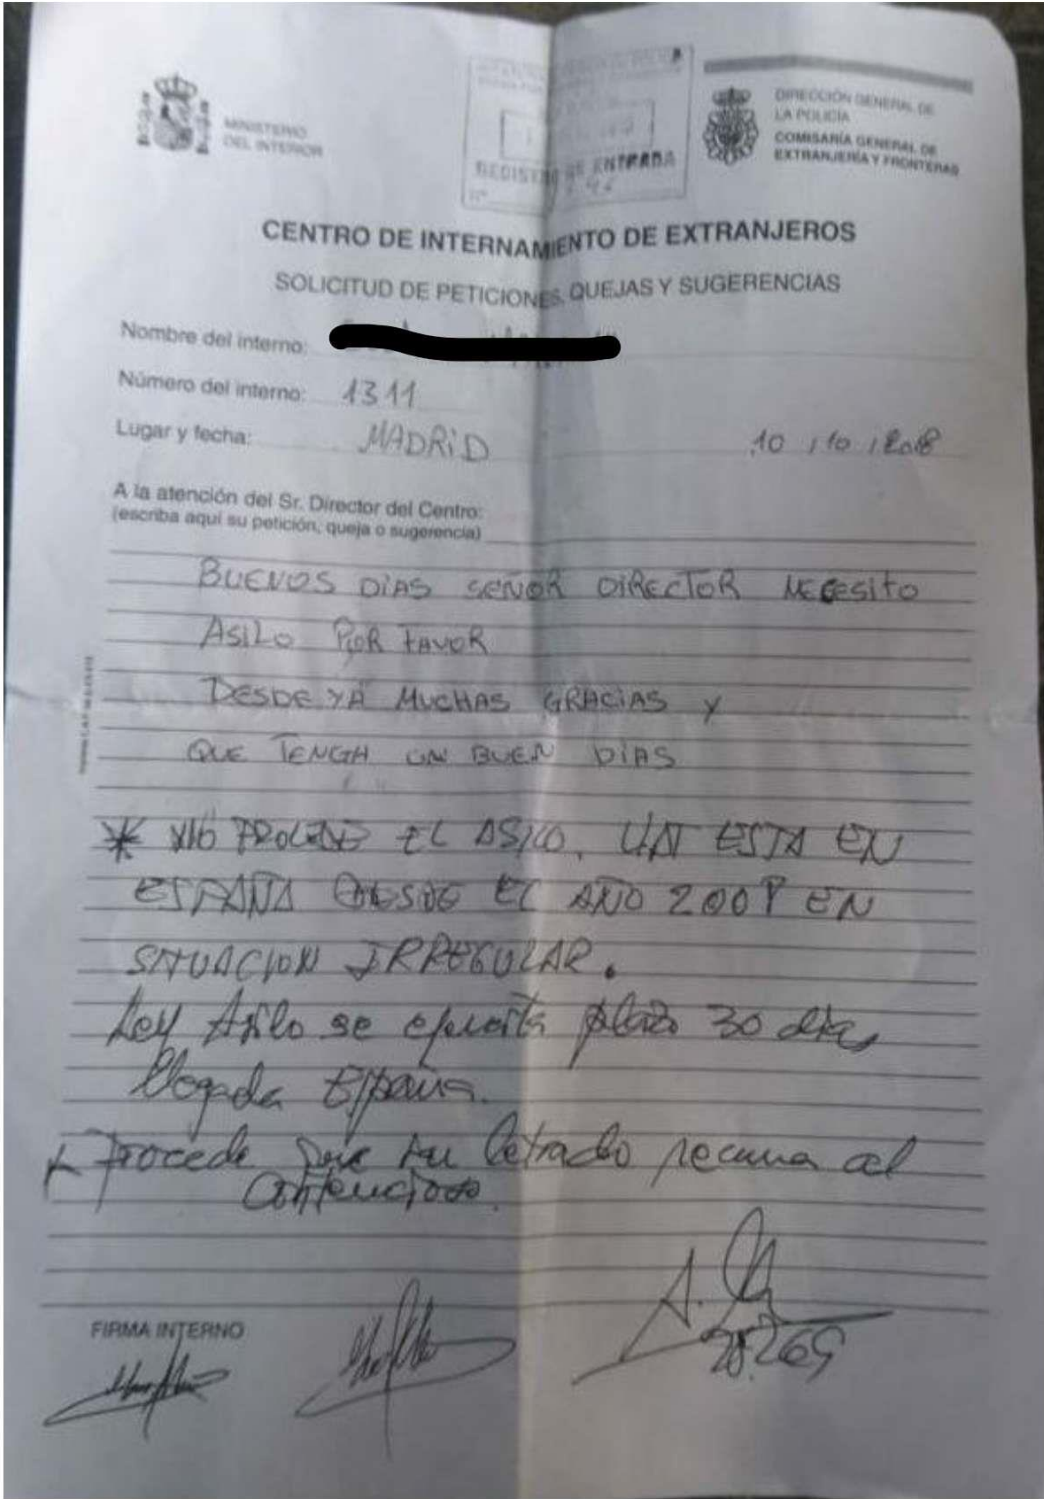 MINISTERIO
DEL INTERIOR
REGISTRO DE ENTRADA
Nº
DIRECCIÓN GENERAL DE
LA POLICÍA
COMISARÍA GENERAL DE
EXTRANJERÍA Y FRONTERAS
CENTRO DE INTERNAMIENTO DE EXTRANJEROS
SOLICITUD DE PETICIONES, QUEJAS Y SUGERENCIAS
Nombre del interno:
Número del interno: 1311
Lugar y fecha: MADRID 10 / 10 / 2018
A la atención del Sr. Director del Centro:
(escriba aquí su petición, queja o sugerencia)
BUENOS DÍAS SEÑOR DIRECTOR NECESITO
ASILO POR FAVOR
DESDE YA MUCHAS GRACIAS Y
QUE TENGA UN BUEN DÍAS
* NO PROCEDE EL ASILO. ESTA EN
ESPAÑA DESDE EL AÑO EN
SITUACION IRREGULAR.
Ley Asilo se plazo 30 días
llegada España.
Procede que su letrado recurra al
Contencioso.
FIRMA INTERNO
A.